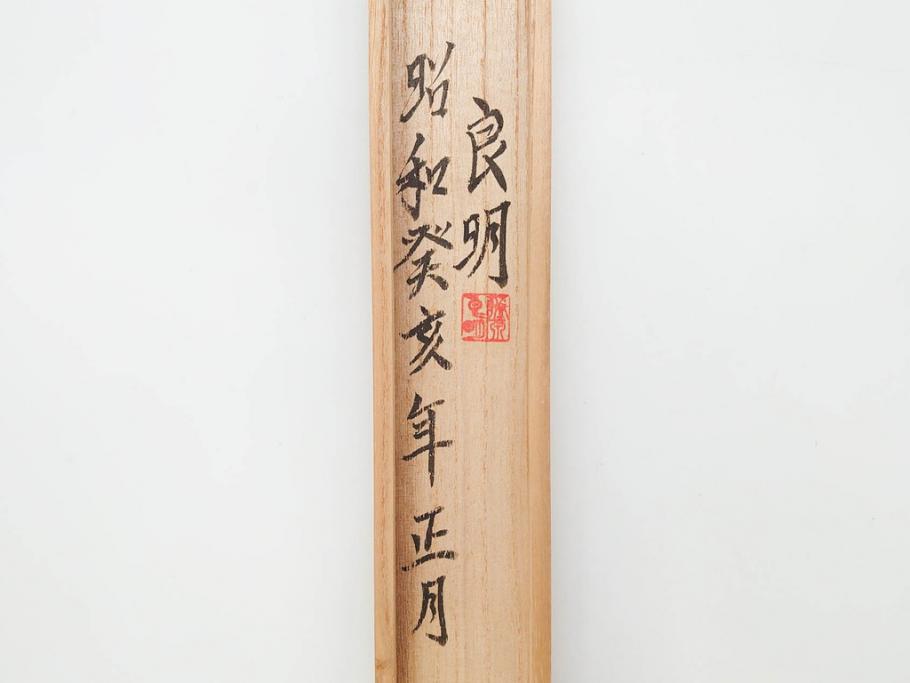 良明
昭和癸亥年正月